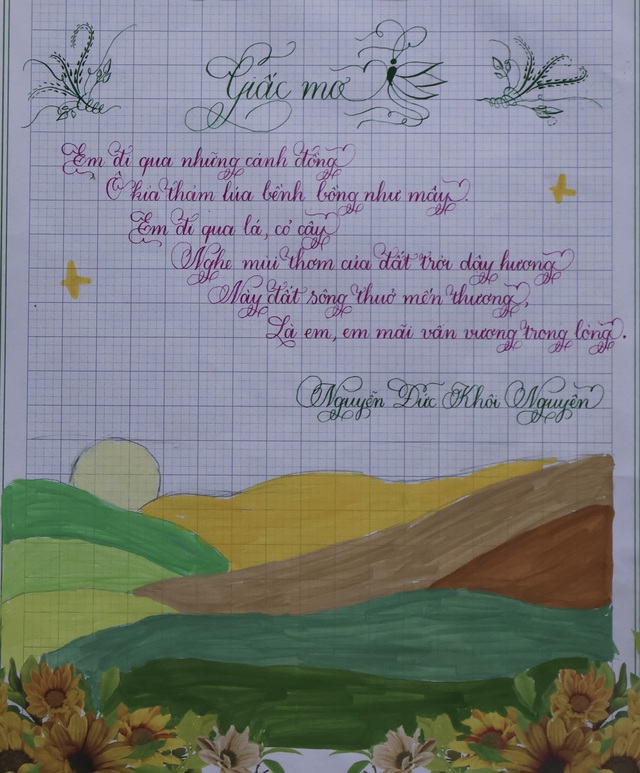 Giấc mơ
Em đi qua những cánh đồng
Ô kìa thảm lúa bềnh bồng như mây.
Em đi qua lá, cỏ cây
Nghe mùi thơm của đất trời dậy hương
Này đất sông thuở mến thương,
Là em, em mãi vấn vương trong lòng.
Nguyễn Đức Khôi Nguyễn